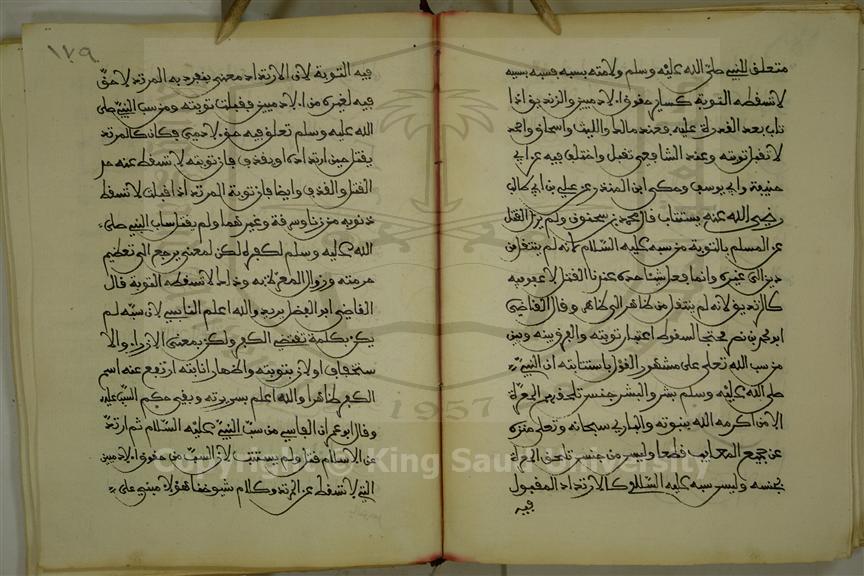 متعلق للنبي صلى الله عليه وسلم ولامته بسبه فسبه بسبه
لا تسقطه التوبة كساير حقوق الادميين والزنديق اذا
تاب بعد القدرة عليه فعند مالك والليث واسحاق واحمد
لا تقبل توبته وعند الشافعي تقبل واختلف فيه عن ابي
حنيفة وابي يوسف وحكى ابن المنذر عن علي بن ابي طالب
رضي الله عنه يستتاب قال محمد بن سحنون ولم يزل القتل
عن المسلم بالتوبة من سبه عليه السلام لانه لم ينتقل من
دين الى غيره وانما فعل شيئا حده عندنا القتل لا عفو فيه
كالزنديق لانه لم ينتقل من ظاهر الى ظاهر وقال القاضي
ابو محمد بن نصر محتجا لسقوط اعتبار توبته والفرق بينه وبين
من سب الله تعلى على مشهور القول باستتابته ان النبي
صلى الله عليه وسلم بشر والبشر جنس تلحقهم المعرة
الا من اكرمه الله بنبوته والباري سبحانه وتعلى منزه
عن جميع المعايب قطعا وليس من جنس تلحق المعرة
بجنسه وليس سبه عليه السلام كالارتداد المقبول
فيه
١٧٩
فيه التوبة لان الارتداد معنى ينفرد به المرتد لا حق
فيه لغيره من الادميين فقبلت توبته ومن سب النبي صلى
الله عليه وسلم تعلق فيه حق لادمي فكان كالمرتد
يقتل حين ارتداده او يقذف فان توبته لا تسقط عنه حد
القتل والقذف وايضا فان توبة المرتد اذا قبلت لا تسقط
ذنوبه من زنا وسرقة وغيرهما ولم يقتل ساب النبي صلى
الله عليه وسلم لكفره لكن لمعنى يرجع الى تعظيم
حرمته وزوال المعرة به وذلك لا تسقطه التوبة قال
القاضي ابو الفضل يريد والله اعلم لان سبه لم
يكن بكلمة تقتضي الكفر ولكن بمعنى الازراء والا
ستخفاف او لان بتوبته واظهار انابته ارتفع عنه اسم
الكفر ظاهرا والله اعلم بسريرته وبقي حكم السب عليه
وقال ابو عمران الفاسي من سب النبي عليه السلام ثم ارتد
عن الاسلام قتل ولم يستتب لان السب من حقوق الادميين
التي لا تسقط عن المرتد وكلام شيوخنا هؤلاء مبني على
Copyright © King Saud University
1957